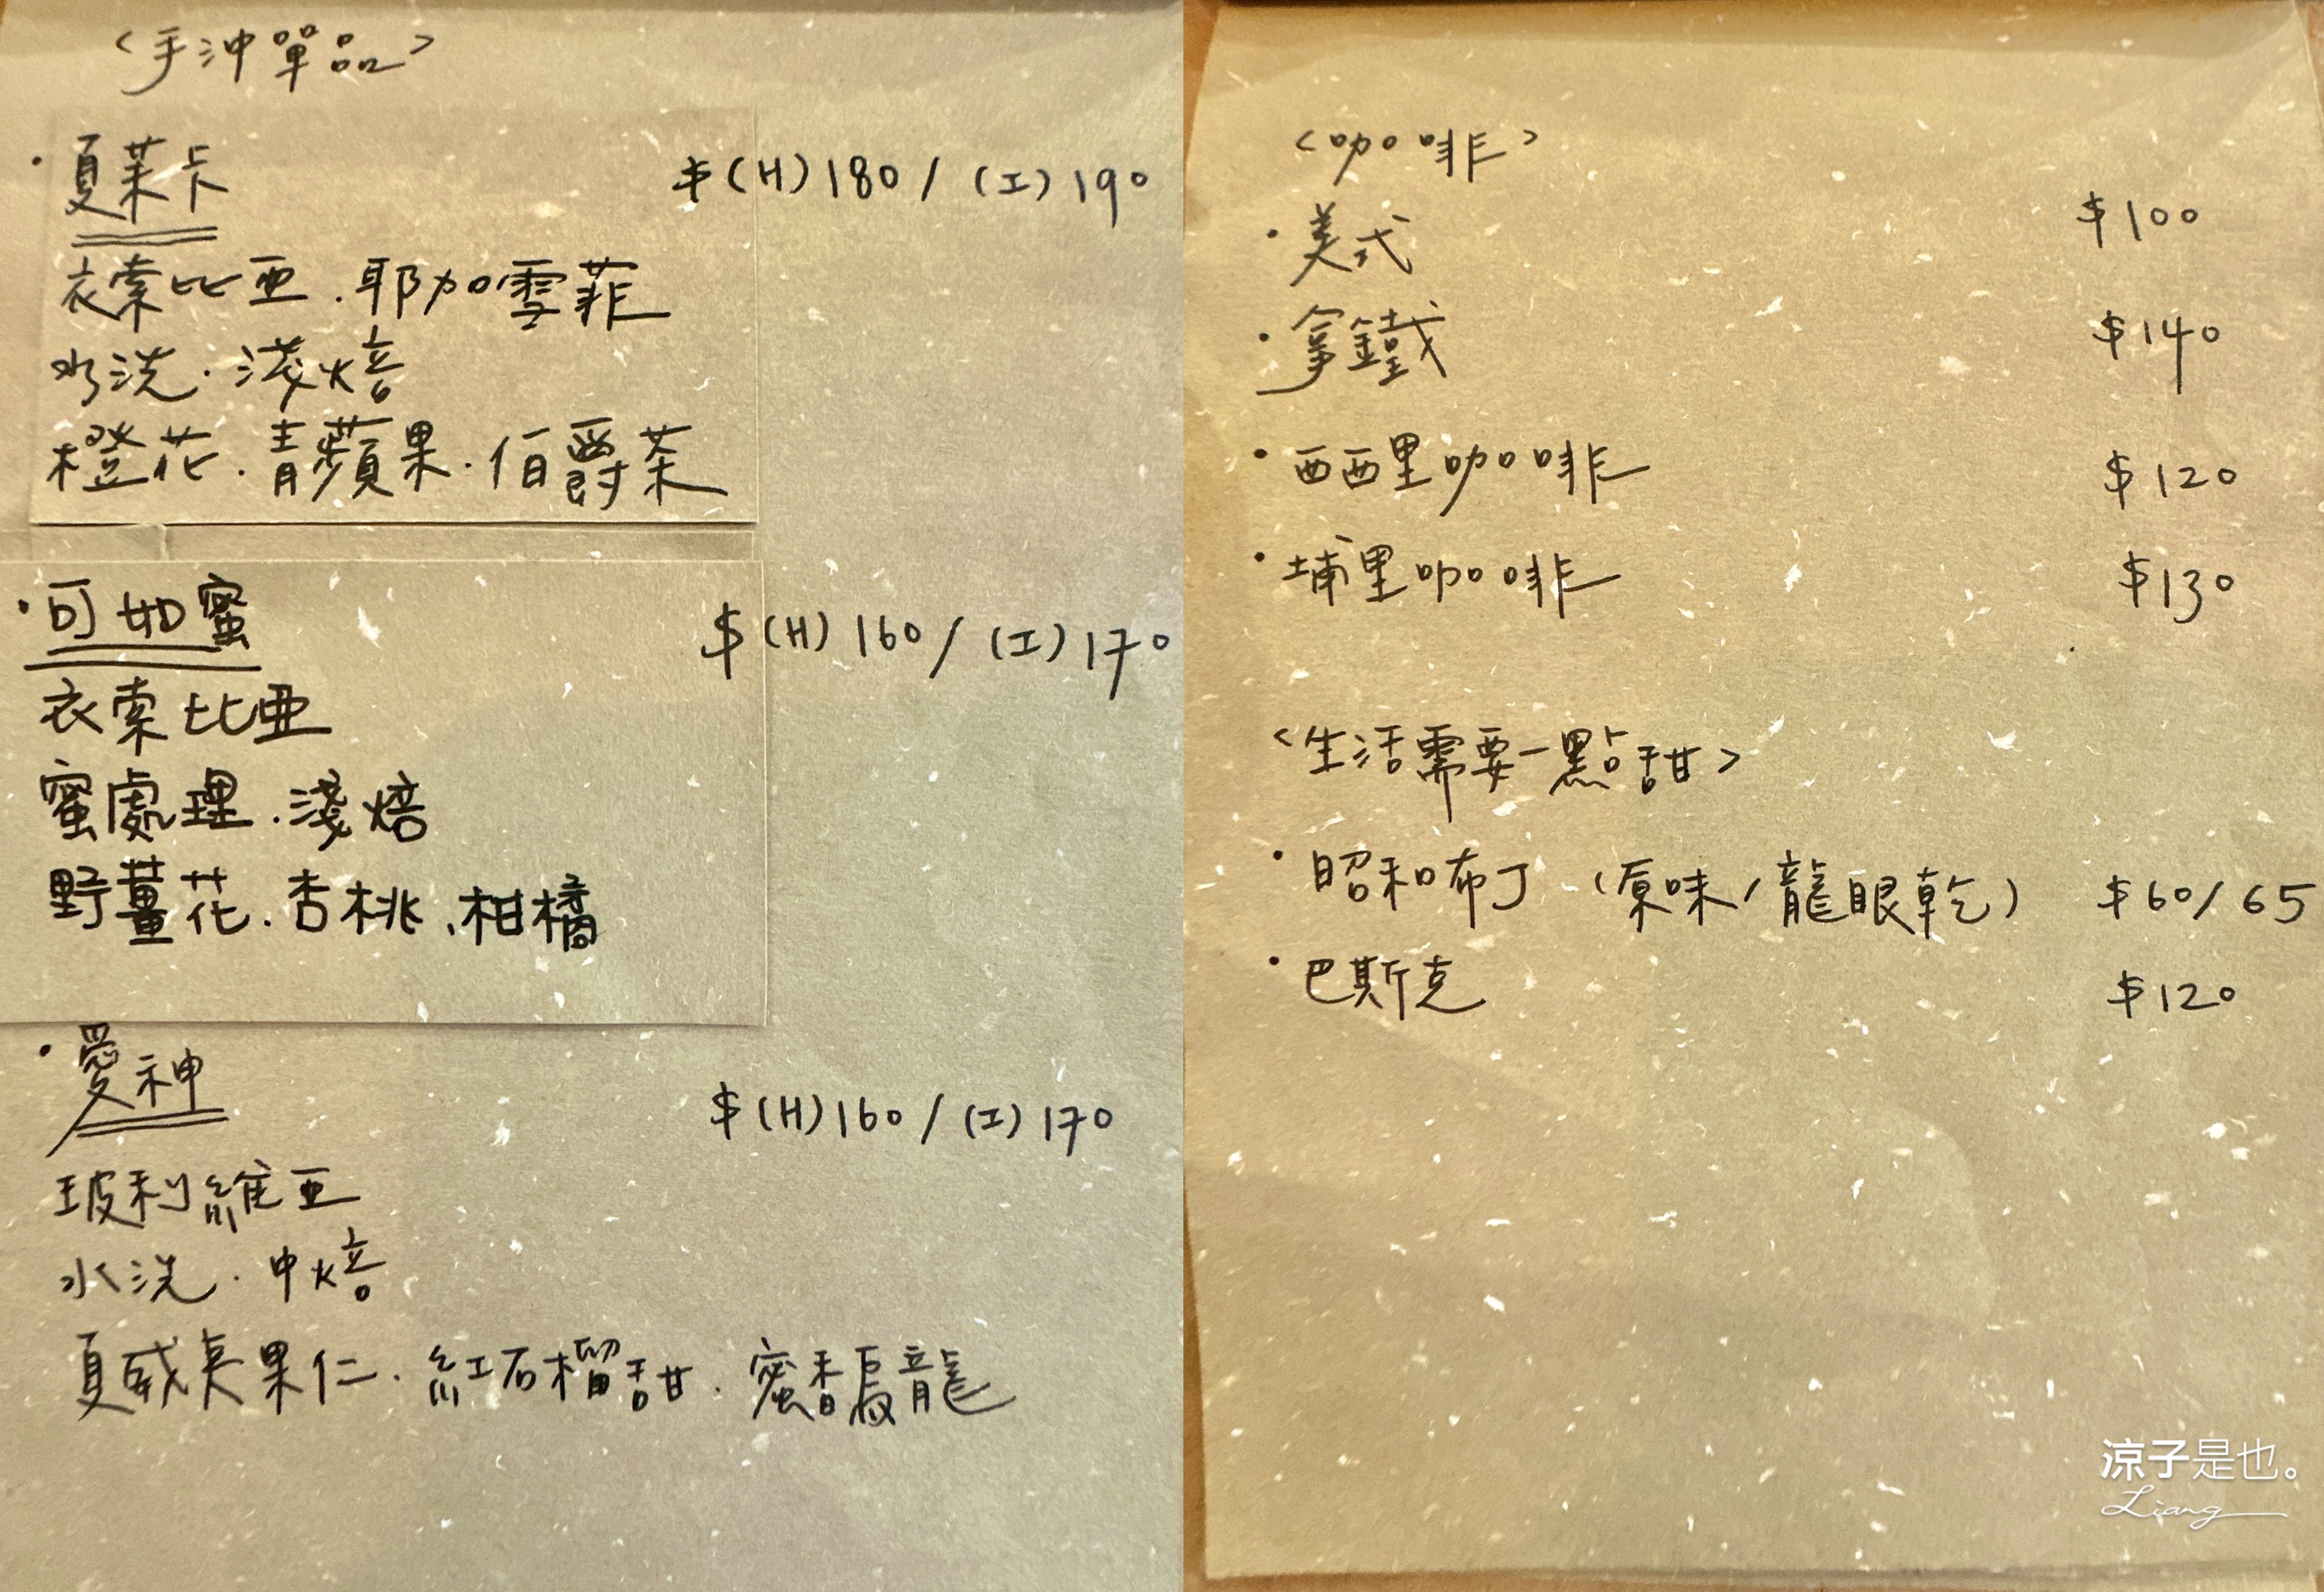 <手沖單品>
·夏茉卡 $(H)180/(I)190
衣索比亞.耶加雪菲
水洗.淺焙
橙花.青蘋果.伯爵茶
·可如蜜 $(H)160/(I)170
衣索比亞
蜜處理.淺焙
野薑花.杏桃.柑橘
·愛神 $(H)160/(I)170
玻利維亞
水洗.中焙
夏威夷果仁.紅石榴甜.蜜香烏龍
<咖啡>
·美式 $100
·拿鐵 $140
·西西里咖啡 $120
·埔里咖啡 $130
<生活需要一點甜>
·昭和布丁(原味/龍眼乾) $60/65
·巴斯克 $120
涼子是也。
Liang